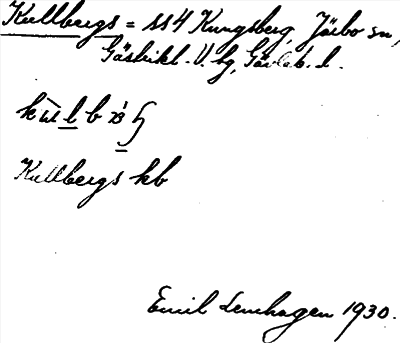 Kullbergs = ss 4 Kungsberg, Järbo sn,
Gästrikl. V. hg, Gävleb. l.
Kullbergs kb
Emil Lenhagen 1930.